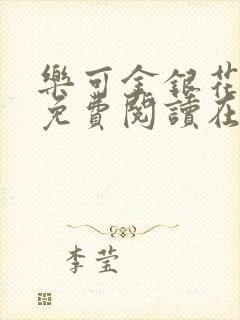 樂可金銀花
免費閱讀在
李莹